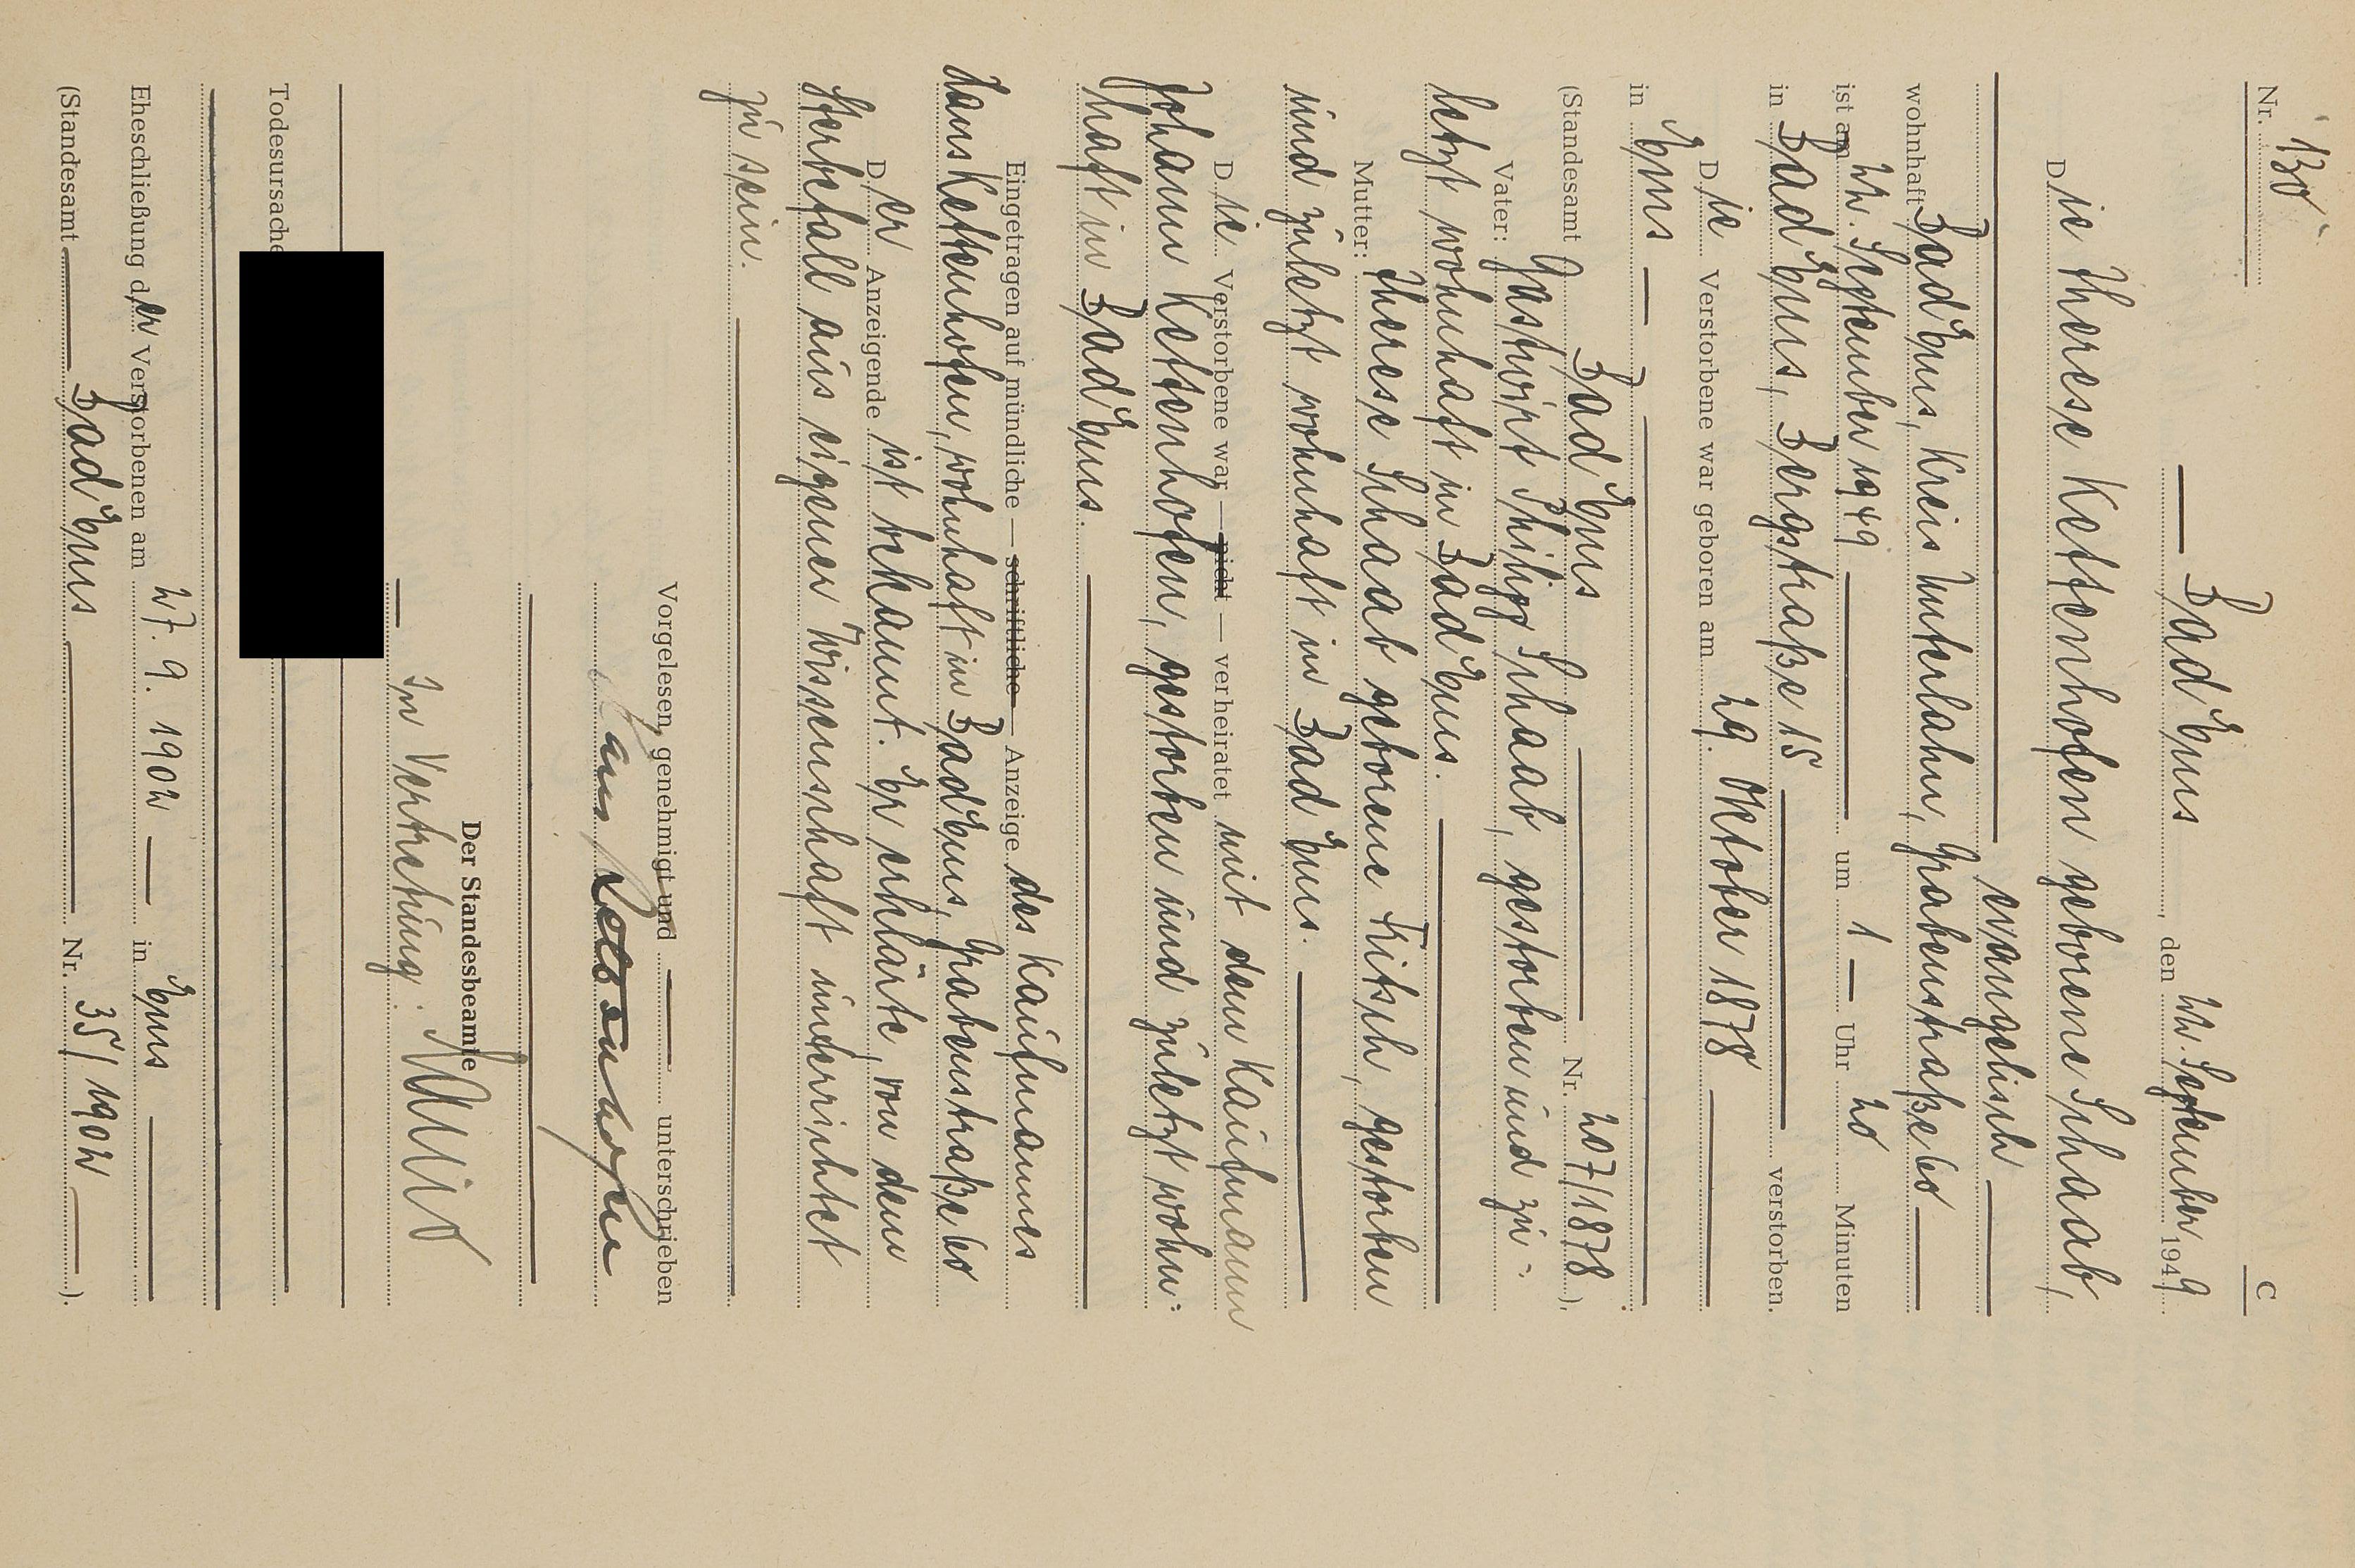 Nr. 130
C
Bad Ems, den 22. September 1949
Die Therese Kettenhofen geborene Schaab,
evangelisch
wohnhaft Bad Ems, Kreis Unterlahn, Grabenstraße 60
ist am 22. September 1949 um 1 Uhr 20 Minuten
in Bad Ems, Bergstraße 15 verstorben.
Die Verstorbene war geboren am 29. Oktober 1878
in Ems
(Standesamt Bad Ems Nr. 207/1878).
Vater: Gastwirt Philipp Schaab, gestorben und zu-
letzt wohnhaft in Bad Ems.
Mutter: Therese Schaab geborene Fritsch, gestorben
und zuletzt wohnhaft in Bad Ems.
Die Verstorbene war — nicht — verheiratet mit dem Kaufmann
Johann Kettenhofen, gestorben und zuletzt wohn-
haft in Bad Ems.
Eingetragen auf mündliche — schriftliche — Anzeige des Kaufmannes
Hans Kettenhofen, wohnhaft in Bad Ems, Grabenstraße 60
Der Anzeigende ist bekannt. Er erklärte, von dem
Sterbefall aus eigener Wissenschaft unterrichtet
zu sein.
Vorgelesen, genehmigt und unterschrieben
Hans Kettenhofen
Der Standesbeamte
In Vertretung:
Todesursache
Eheschließung der Verstorbenen am 27. 9. 1902 in Ems
(Standesamt Bad Ems Nr. 35/1902).